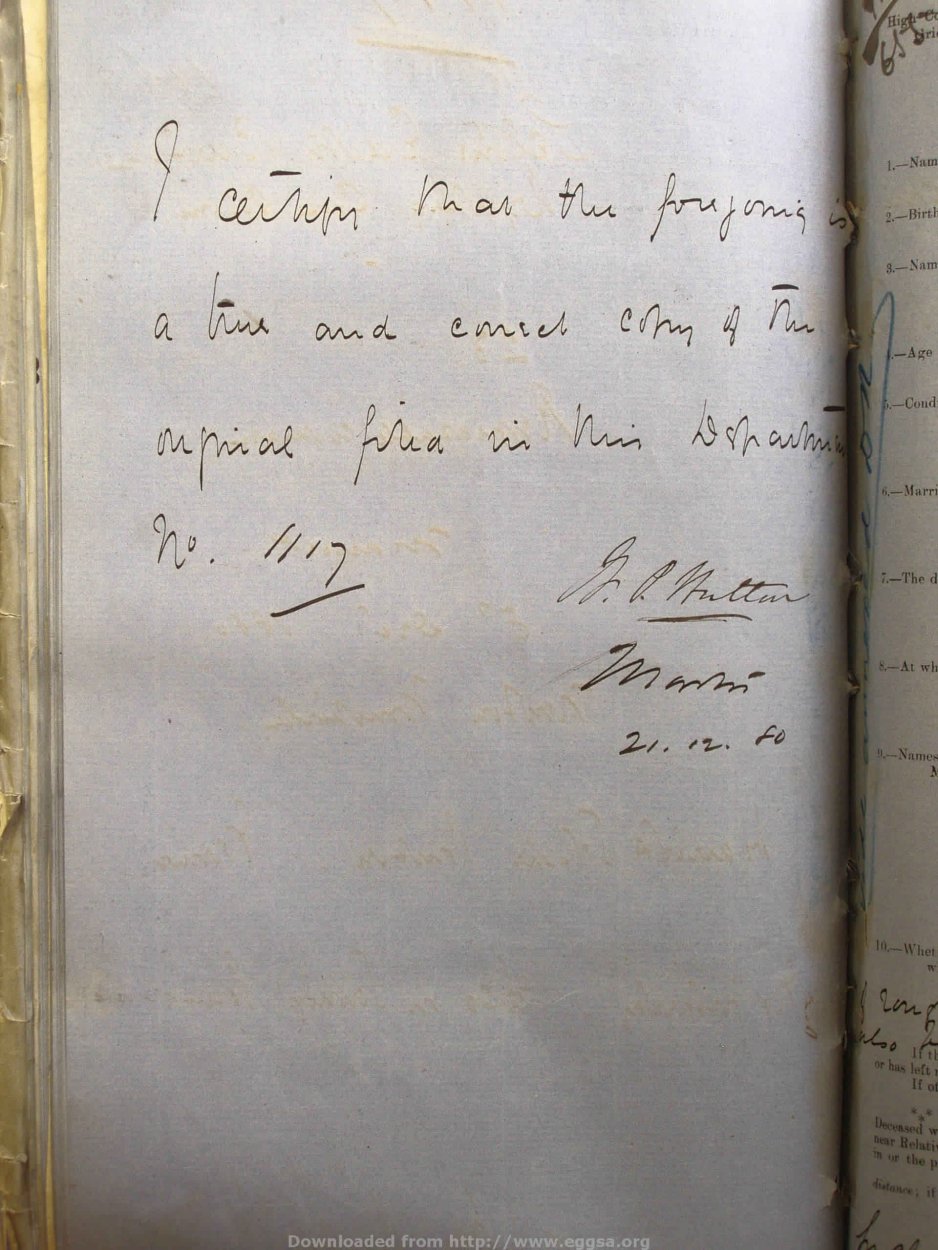 I certify that the foregoing is
a true and correct copy of the
original filed in this Department
No. 1117
Hutton
Master
21. 12. 80
High Co
1.—Nam
2.—Birth
3.—Nam
4.—Age
5.—Cond
6.—Marri
7.—The d
8.—At wh
9.—Names
M
10.—Whet
w
also
If th
or has left
If of
***
Deceased w
near Relativ
in or the p
distance; if
Downloaded from http://www.eggsa.org